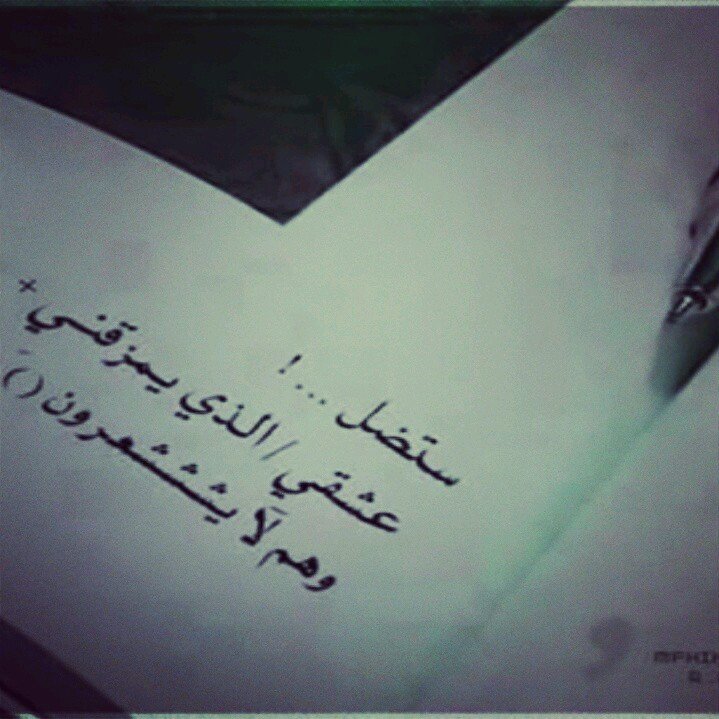 ستضل ...!
عشقي / الذي يمزقني ×
وهم لآ يشششعرون ()